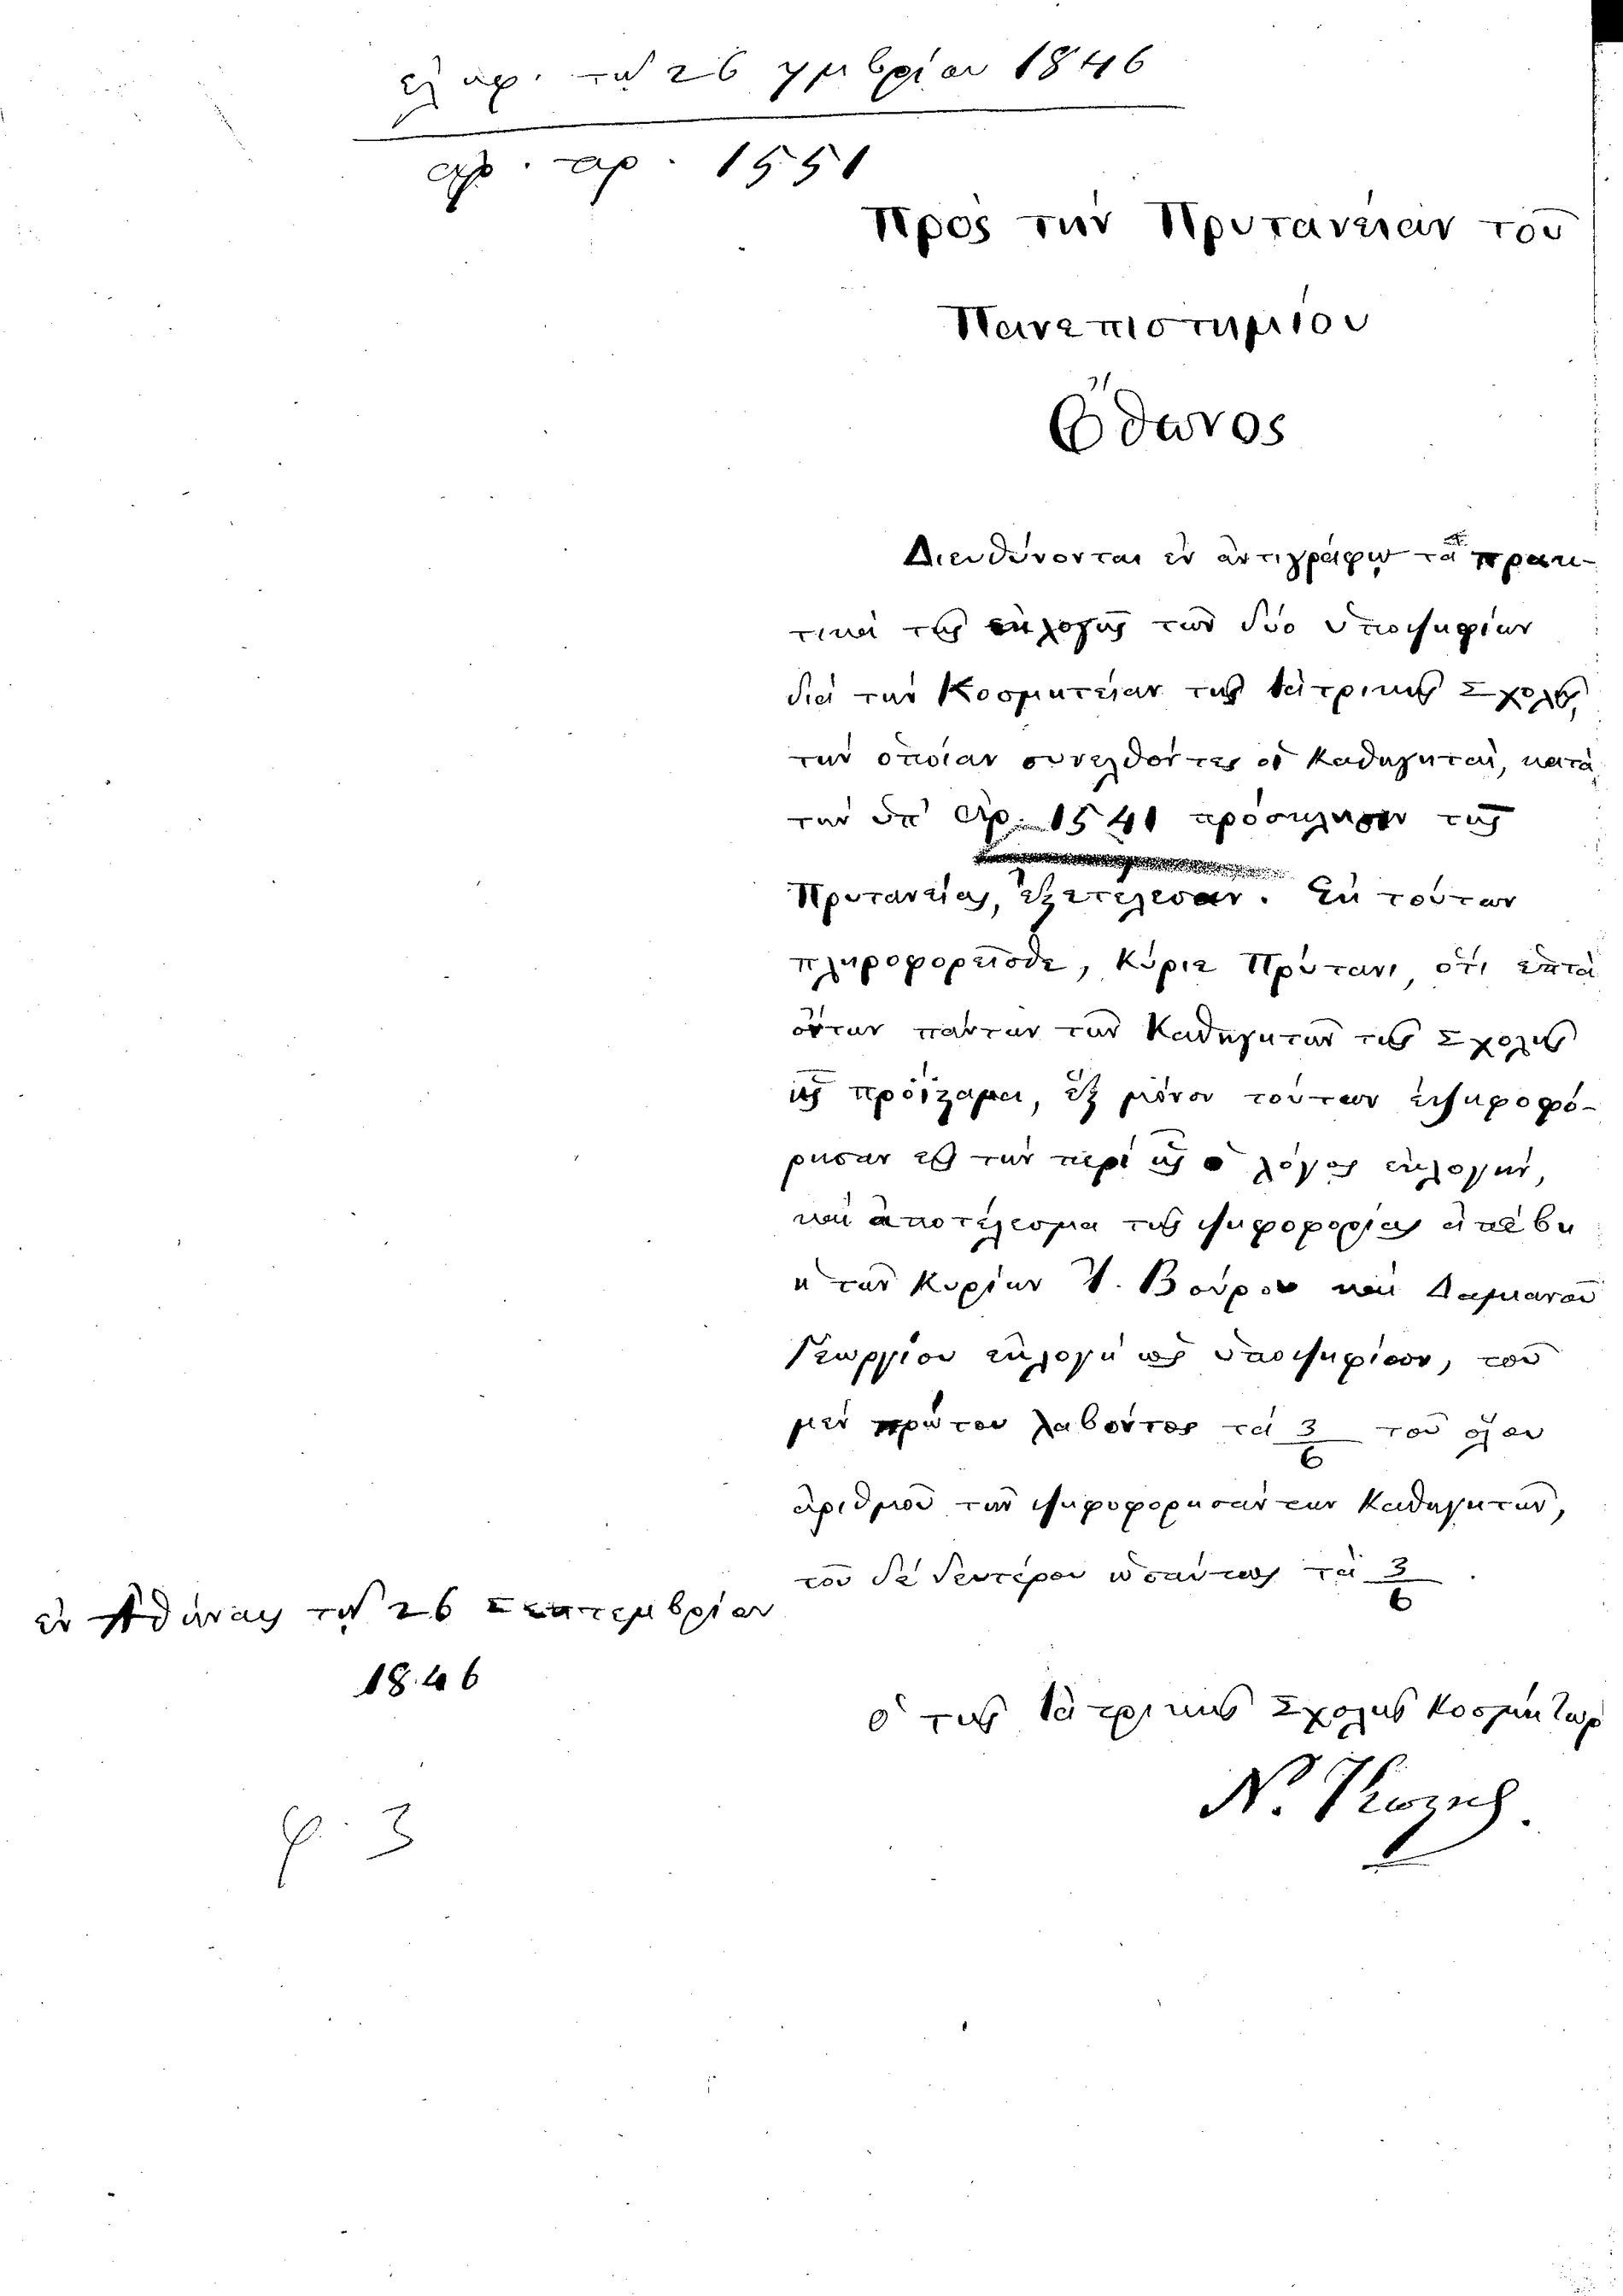 ἐλήφ. τῇ 26 7μβρίου 1846
ἀρ. πρ. 1551
Πρὸς τὴν Πρυτανείαν τοῦ
Πανεπιστημίου
Ὄθωνος
Διευθύνονται ἐν ἀντιγράφῳ τὰ πρακ-
τικὰ τῆς ἐκλογῆς τῶν δύο ὑποψηφίων
διὰ τὴν Κοσμητείαν τῆς Ἰατρικῆς Σχολῆς,
τὴν ὁποίαν συνελθόντες οἱ Καθηγηταί, κατὰ
τὴν ὑπ' ἀρ. 1541 πρόσκλησιν τῆς
Πρυτανείας, ἐξετέλεσαν. Ἐκ τούτων
πληροφορεῖσθε, Κύριε Πρύτανι, ὅτι ἑπτὰ
ὄντων πάντων τῶν Καθηγητῶν τῆς Σχολῆς
ἧς προΐσταμαι, ἓξ μόνοι τούτων ἐψηφοφό-
ρησαν εἰς τὴν περὶ ἧς ὁ λόγος ἐκλογήν,
καὶ ἀποτέλεσμα τῆς ψηφοφορίας ἀπέβη
ἡ τῶν Κυρίων Ἰ. Βούρου καὶ Δαμιανοῦ
Γεωργίου ἐκλογὴ ὡς ὑποψηφίων, τοῦ
μὲν πρώτου λαβόντος τὰ 3/6 τοῦ ὅλου
ἀριθμοῦ τῶν ψηφοφορησάντων Καθηγητῶν,
τοῦ δὲ δευτέρου ὡσαύτως τὰ 3/6.
ἐν Ἀθήναις τῇ 26 Σεπτεμβρίου
1846
ὁ τῆς Ἰατρικῆς Σχολῆς Κοσμήτωρ
Ν. Κωστῆς.
φ. 3